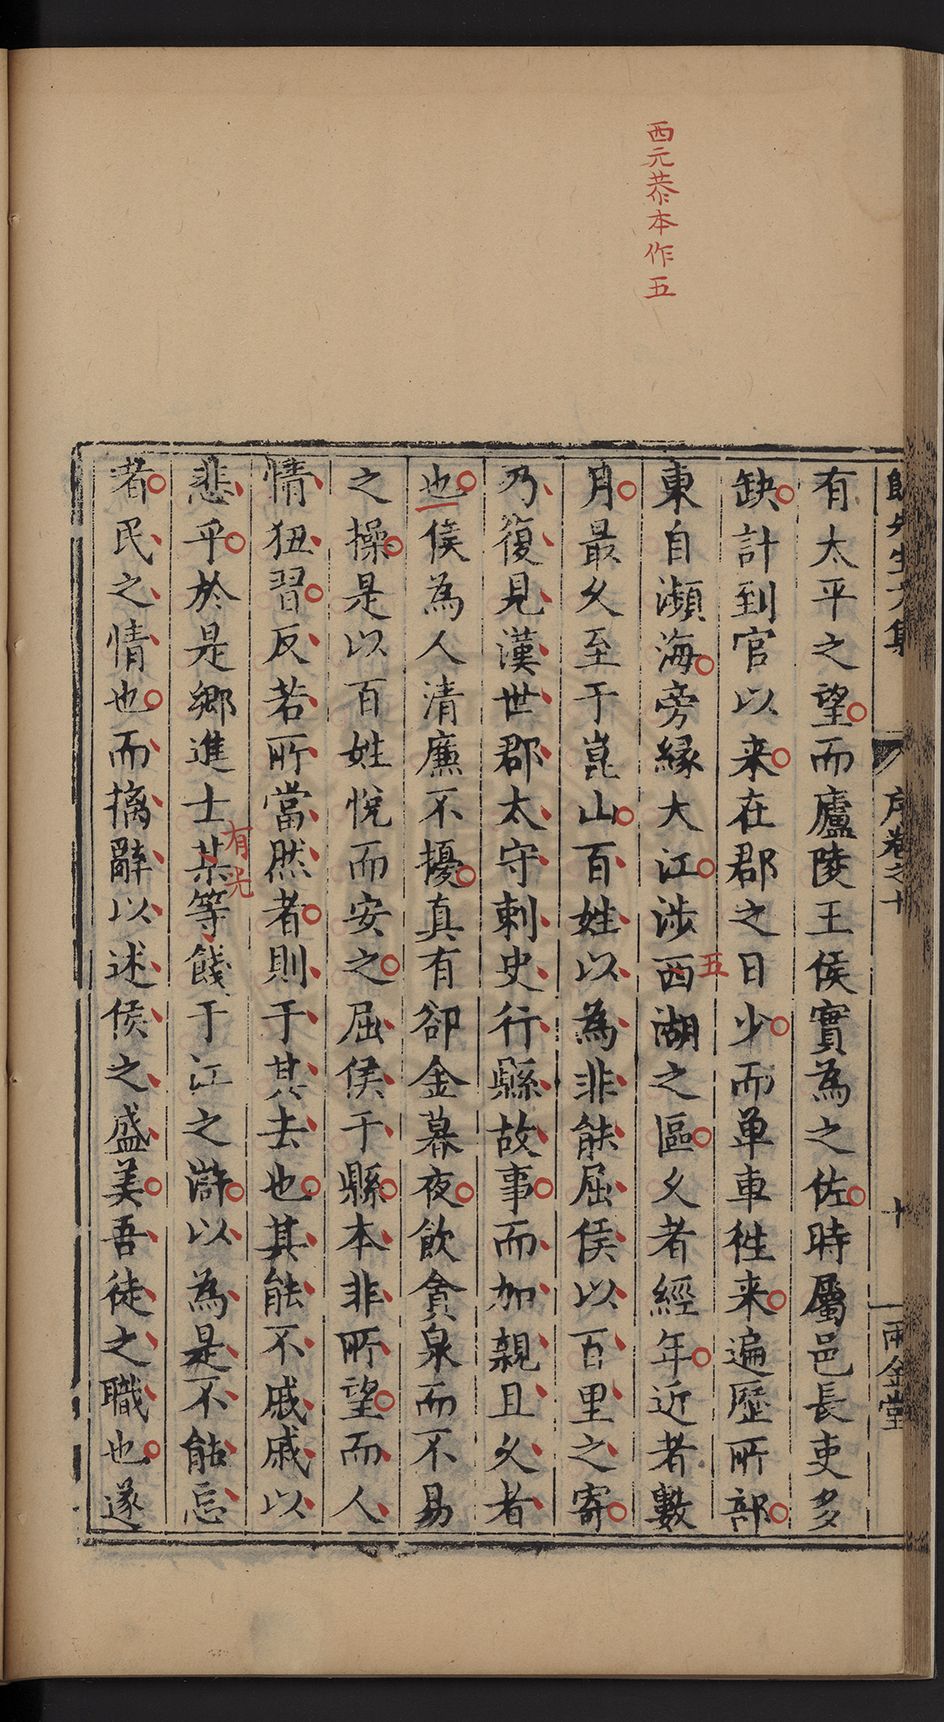 西元恭本作五
有太平之望而廬陵王侯實為之佐時屬邑長吏多
缺計到官以来在郡之日少而单車徃来遍歷所部
東自瀕海旁緣大江涉西湖之區乆者經年近者數
五
月最乆至于崑山百姓以為非能屈侯以百里之寄
乃復見漢世郡太守剌史行縣故事而加親且乆者
也侯為人清廉不擾真有卻金暮夜飲貪泉而不易
之操是以百姓悅而安之屈侯于縣本非所望而人
情狃習反若所當然者則于其去也其能不戚戚以
悲乎於是鄉進士某等餞于江之滸以為是不能忘
有光
者民之情也而摛辭以述侯之盛美吾徒之職也遂
先生文集
序卷之十
十
兩金堂